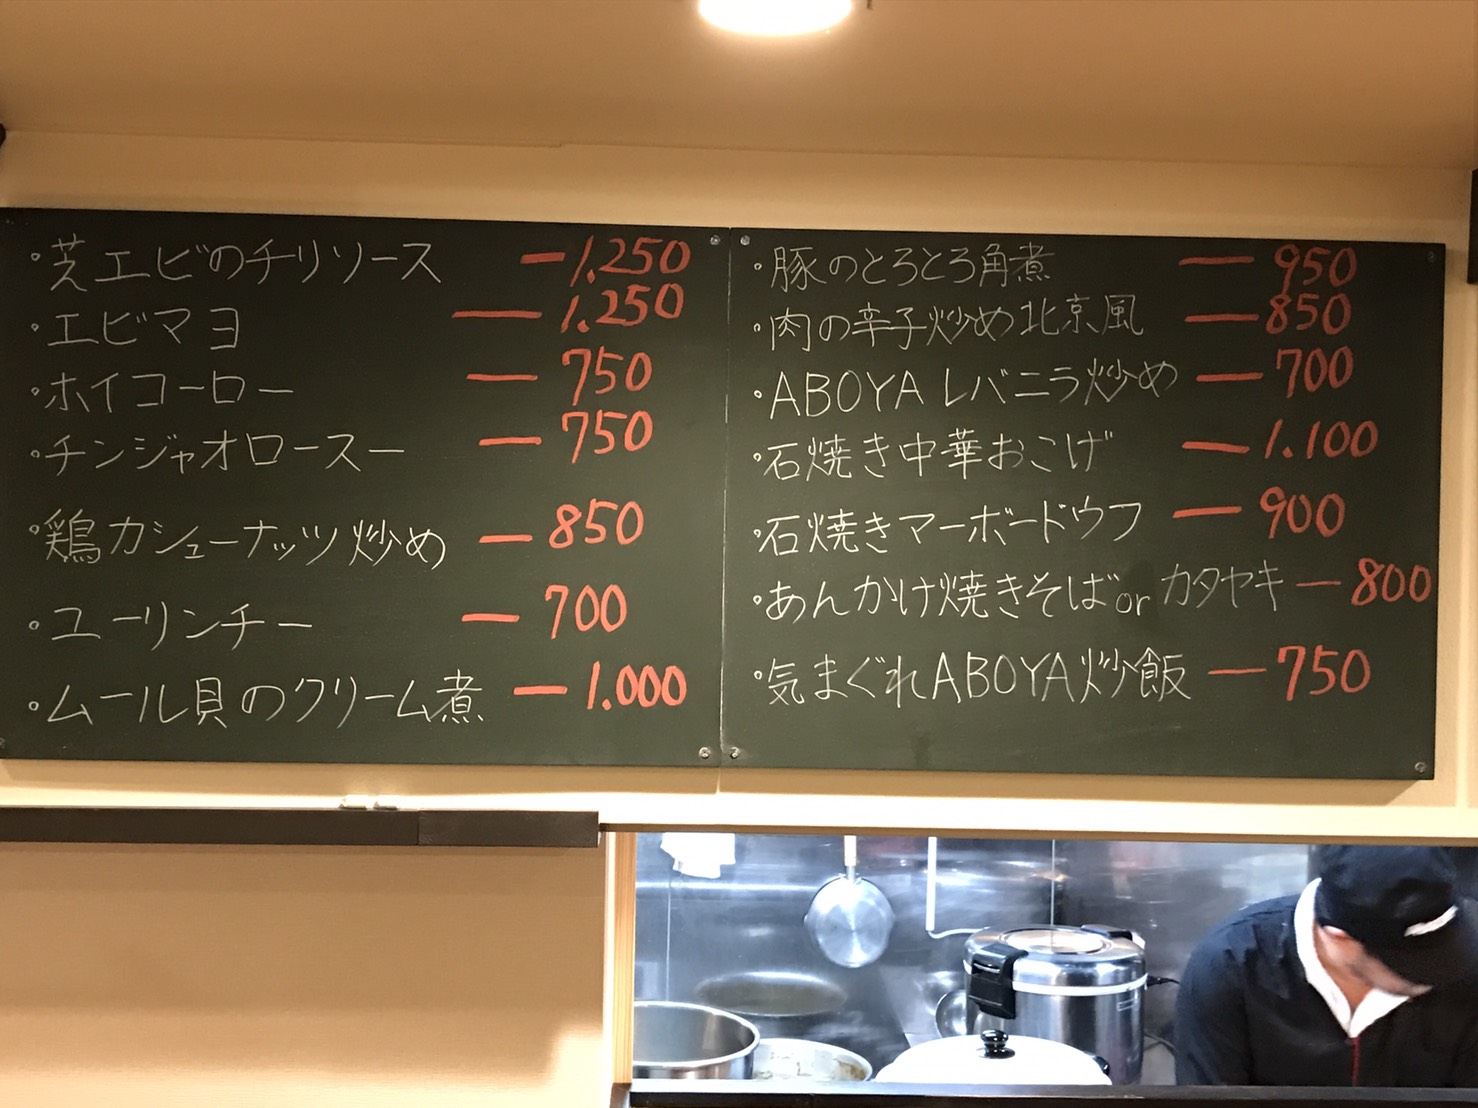 ・芝エビのチリソース ー1.250
・エビマヨ ー1.250
・ホイコーロー ー750
・チンジャオロースー ー750
・鶏カシューナッツ炒め ー850
・ユーリンチー ー700
・ムール貝のクリーム煮 ー1.000
・豚のとろとろ角煮 ー950
・肉の辛子炒め北京風 ー850
・ABOYAレバニラ炒め ー700
・石焼き中華おこげ ー1.100
・石焼きマーボードウフ ー900
・あんかけ焼きそばorカタヤキ ー800
・気まぐれABOYA炒飯 ー750